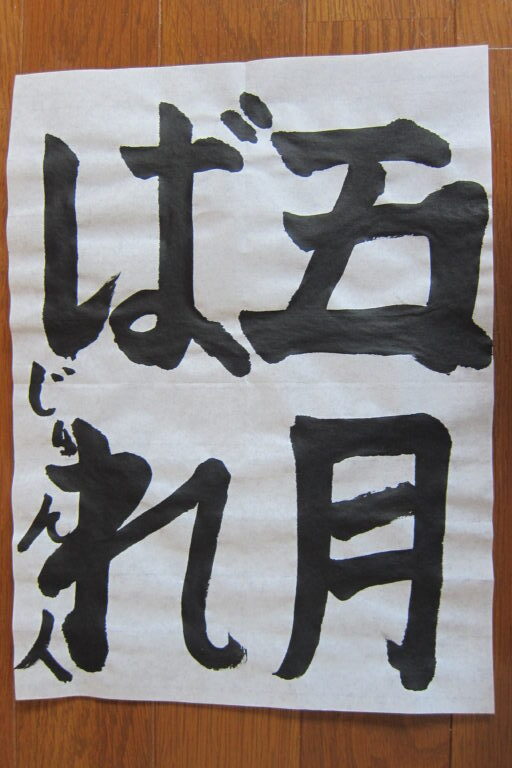 五月
ばれ
じゅん人